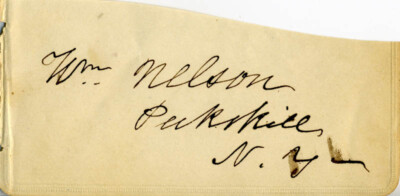 Wm. Nelson
Peekskill
N. Y